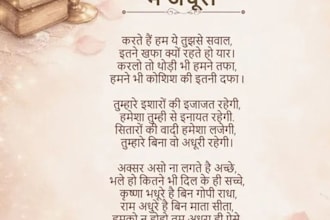 में अधूरा
करते हैं हम ये तुझसे सवाल,
इतने खफा क्यों रहते हो यार।
करलो तो थोड़ी भी हमने तफा,
हमने भी कोशिश की इतनी दफा।
तुम्हारे इशारों की इजाजत रहेगी,
हमेशा तुम्ही से इनायत रहेगी.
सितारों की वादी हमेशा लजेगी,
तुम्हारे बिना वो अधूरी रहेगी।
अक्सर असो ना लगते है अच्छे,
भले हो कितने भी दिल के ही सच्चे,
कृष्णा भधूरे है बिन गोपी राधा,
राम अधूरे है बिन माता सीता,
हमको न होहो तम अधरा ही ऐसे